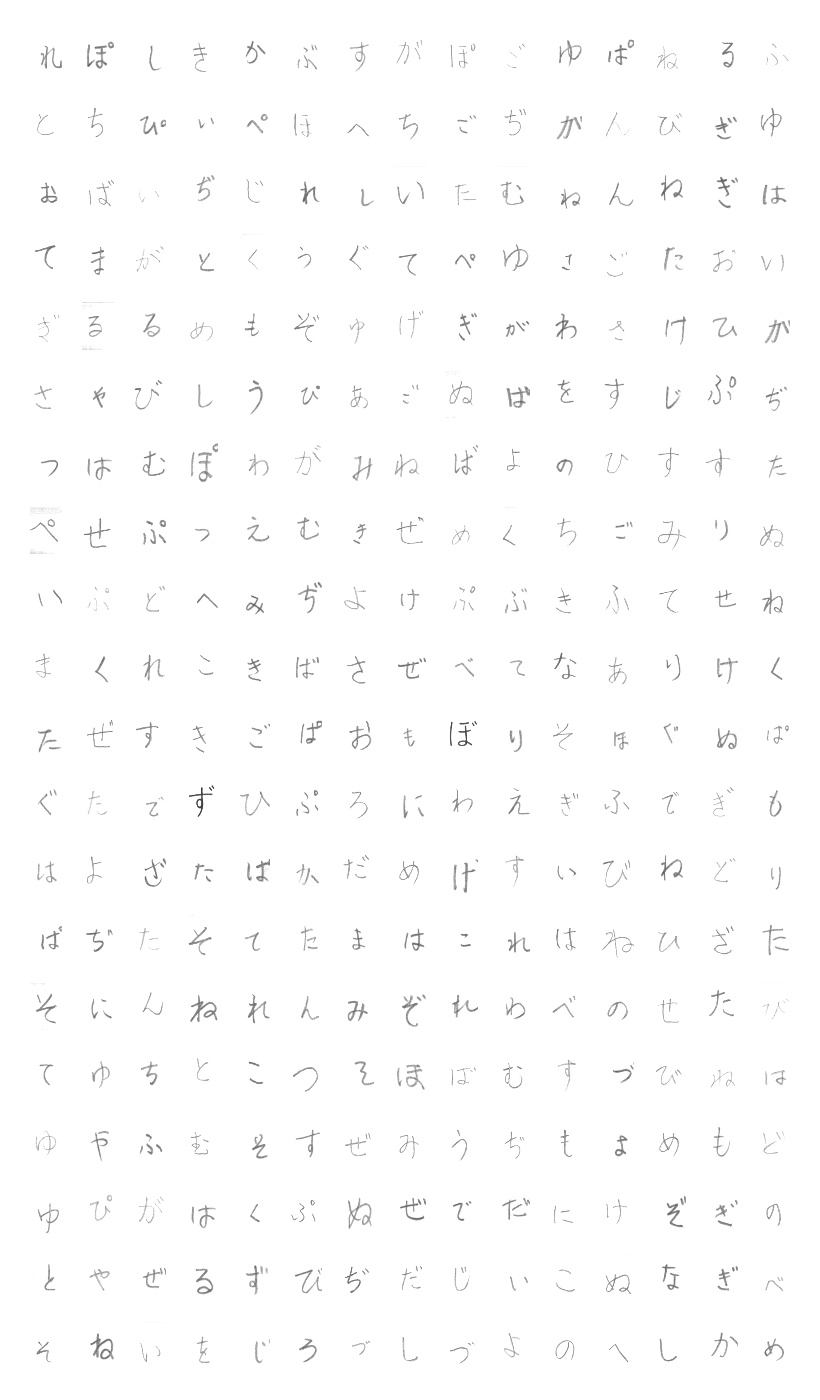 れぽしきかぶすがぽごゆぱねるふ
とちぴいぺほへちごぢがんびぎゆ
おばいぢじれしいたむねんねぎは
てまがとくうぐてぺゆさごたおい
ぎるるめもぞゆげぎがわさけひが
さやびしうぴあごぬばをすじぷぢ
つはむぽわがみねばよのひすすた
ぺせぷつえむきぜめくちごみりぬ
いぷどへみぢよけぷぶきふてせね
まくれこきばさぜべてなありけく
たぜすきごぱおもぼりそほぐぬぱ
ぐたでずひぷろにわえぎふでぎも
はよざたばかだめげすいびねどり
ぱぢたそてたまはこれはねひざた
そにんねれんみぞれわべのせたび
てゆちとこつそほばむすづびねは
ゆやふむそすぜみうぢもよめもど
ゆぴがはくぷぬぜでだにけぞぎの
とやぜるずびぢだじいこぬなぎべ
そねいをじろづしづよのへしかめ